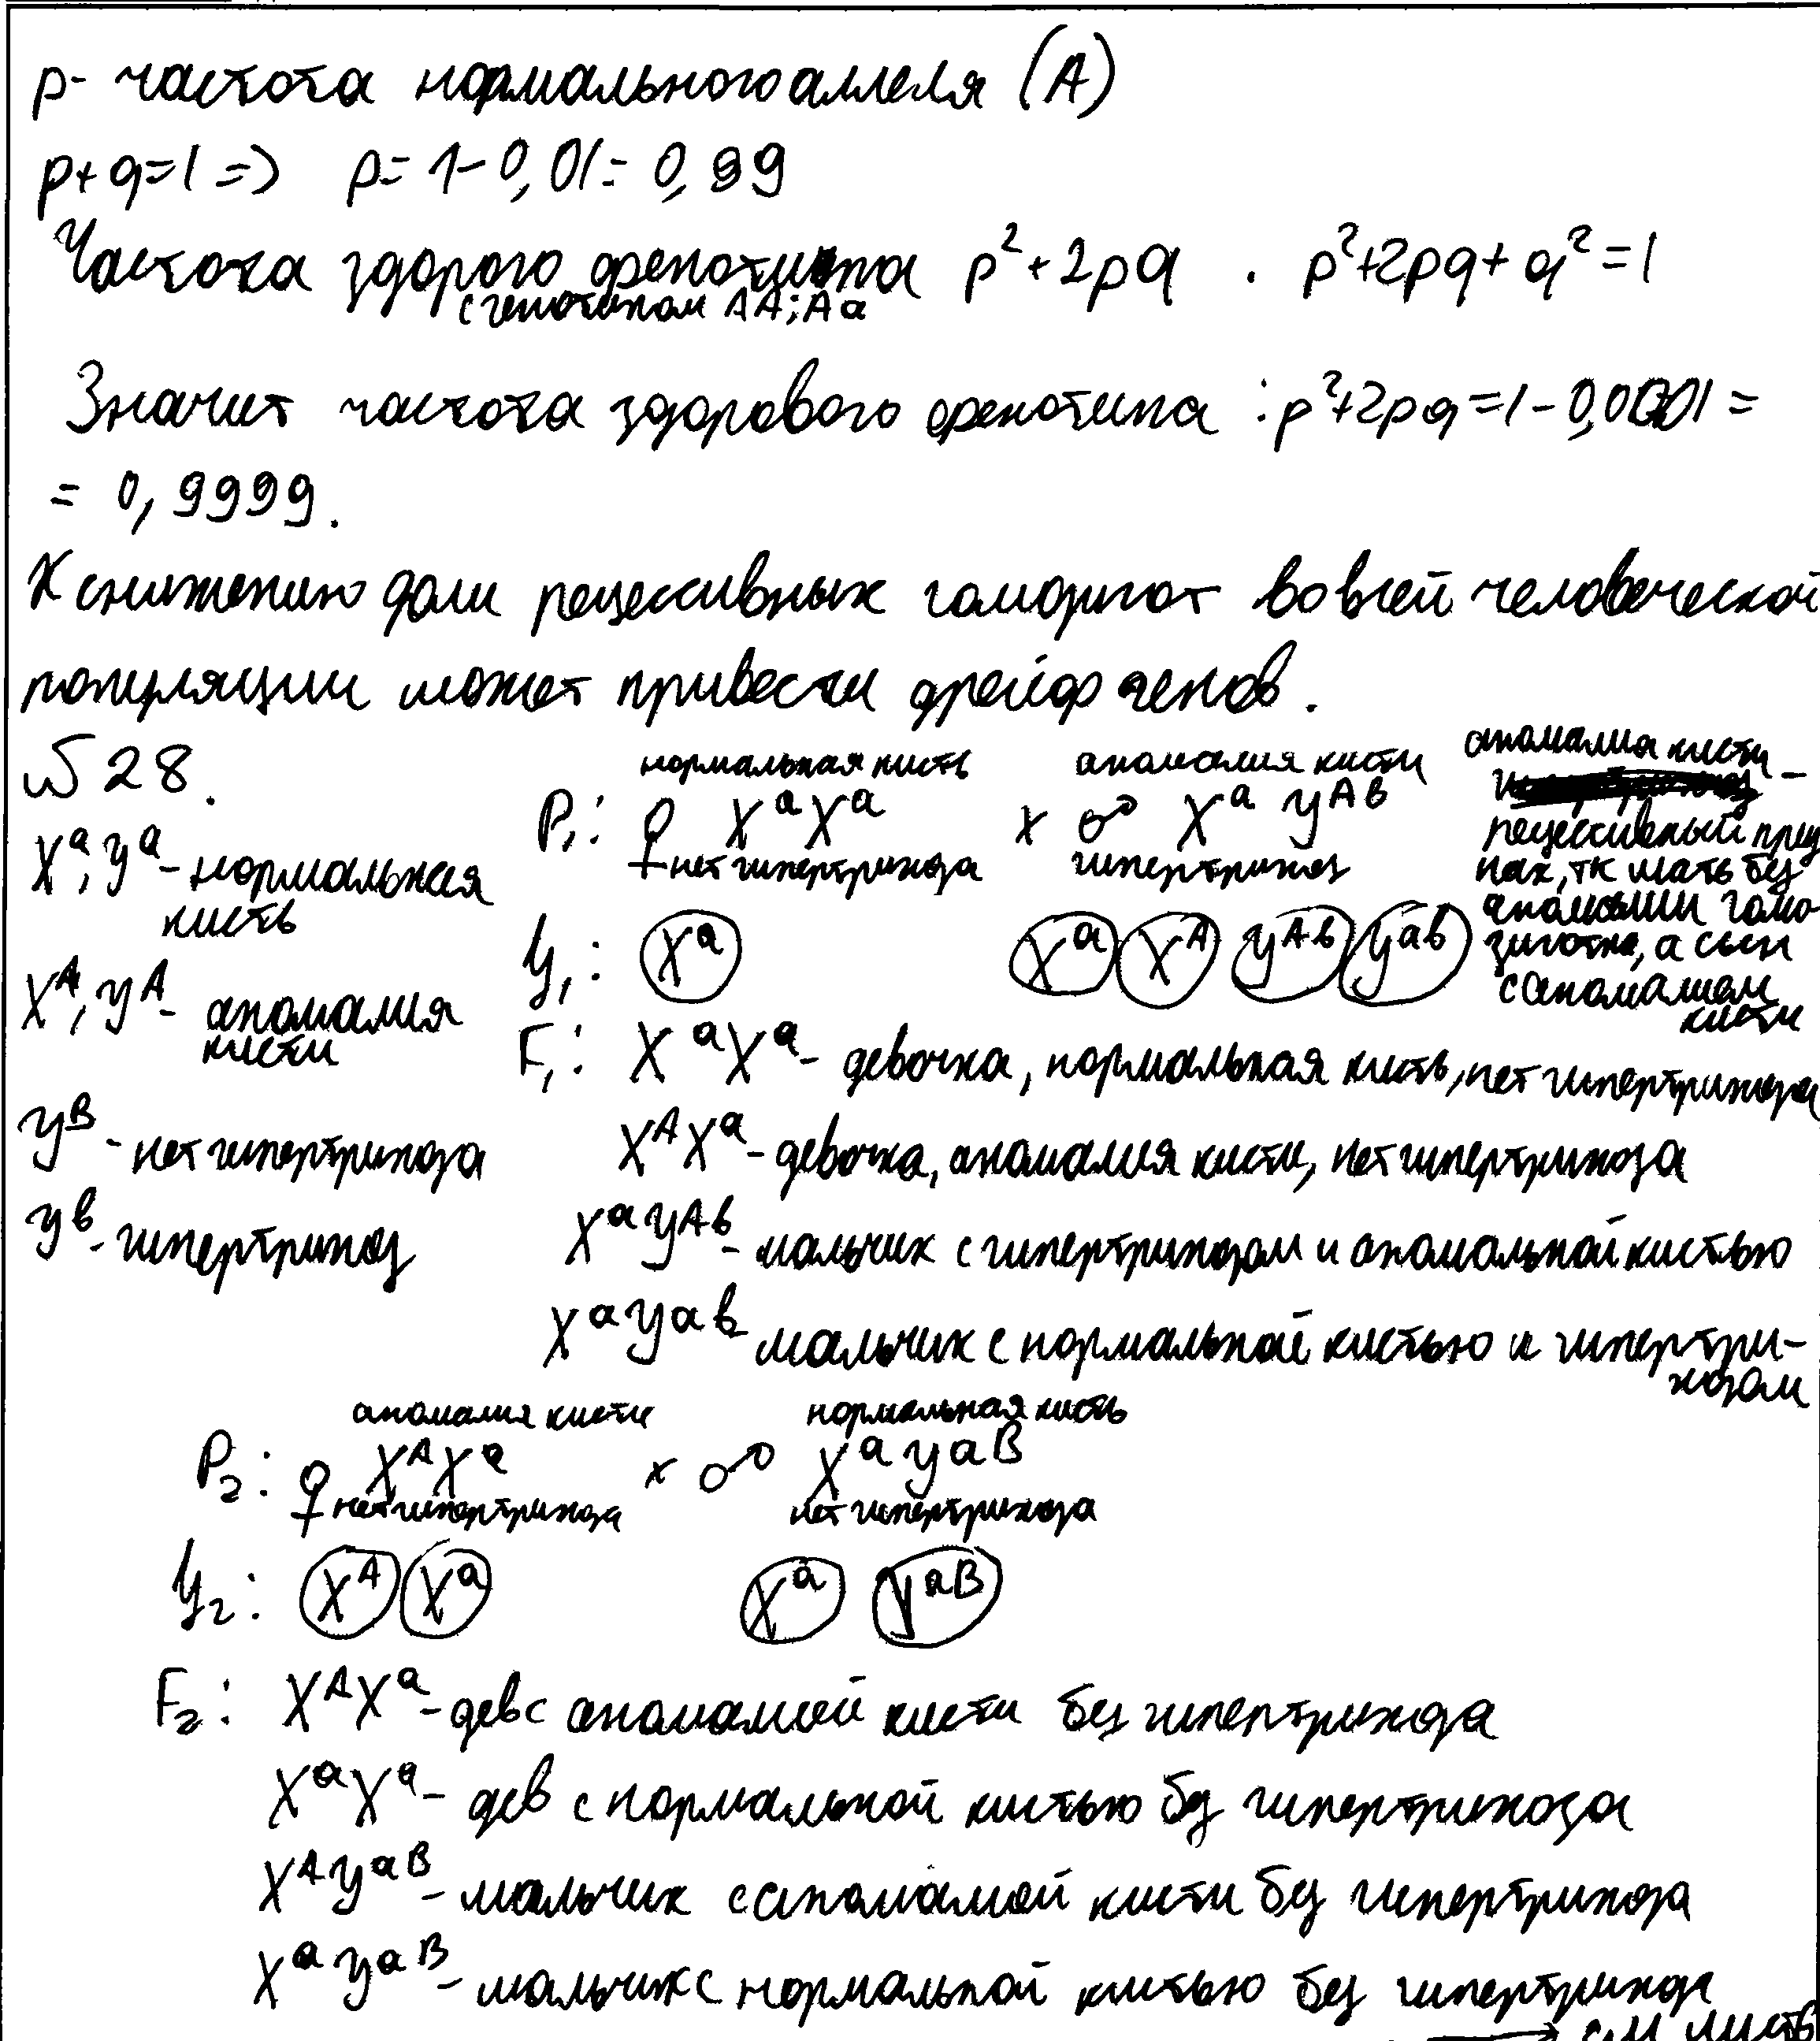 p- частота нормального аллеля (А)
p+q=1 => p= 1-0,01= 0,99
Частота здорого фенотипа p²+2pq . p²+2pq+q²=1
с генотипом АА; Аа
Значит частота здорового фенотипа : p²+2pq=1-0,0001 =
= 0,9999.
К снижению доли рецессивных гомозигот во всей человеческой
популяции может привести дрейф генов.
№ 28.
Xᵃ, Yᵃ - нормальная
кисть
Xᴬ, Yᴬ - аномалия
кисти
Yᴮ - нет гипертрихоза
Yᵇ - гипертрихоз
нормальная кисть аномалия кисти
P₁: ♀ XᵃXᵃ x ♂ Xᵃ Yᴬᵇ
нет гипертрихоза гипертрихоз
аномалия кисти -
рецессивный приз
нак, тк мать без
аномалии гомо-
зиготна, а сын
с аномалией
кисти
У₁: Xᵃ Xᵃ Xᴬ Yᴬᵇ Yᵃᵇ
F₁: XᵃXᵃ - девочка, нормальная кисть, нет гипертрихоза
XᴬXᵃ - девочка, аномалия кисти, нет гипертрихоза
XᵃYᴬᵇ - мальчик с гипертрихозом и аномальной кистью
XᵃYᵃᵇ - мальчик с нормальной кистью и гипертри-
хозом
аномалия кисти нормальная кисть
P₂: ♀ XᴬXᵃ x ♂ XᵃYᵃᴮ
нет гипертрихоза нет гипертрихоза
У₂: Xᴬ Xᵃ Xᵃ Yᵃᴮ
F₂: XᴬXᵃ - дев с аномалией кисти без гипертрихоза
XᵃXᵃ - дев с нормальной кистью без гипертрихоза
XᴬYᵃᴮ - мальчик с аномалией кисти без гипертрихоза
XᵃYᵃᴮ - мальчик с нормальной кистью без гипертрихоза
→ см лист